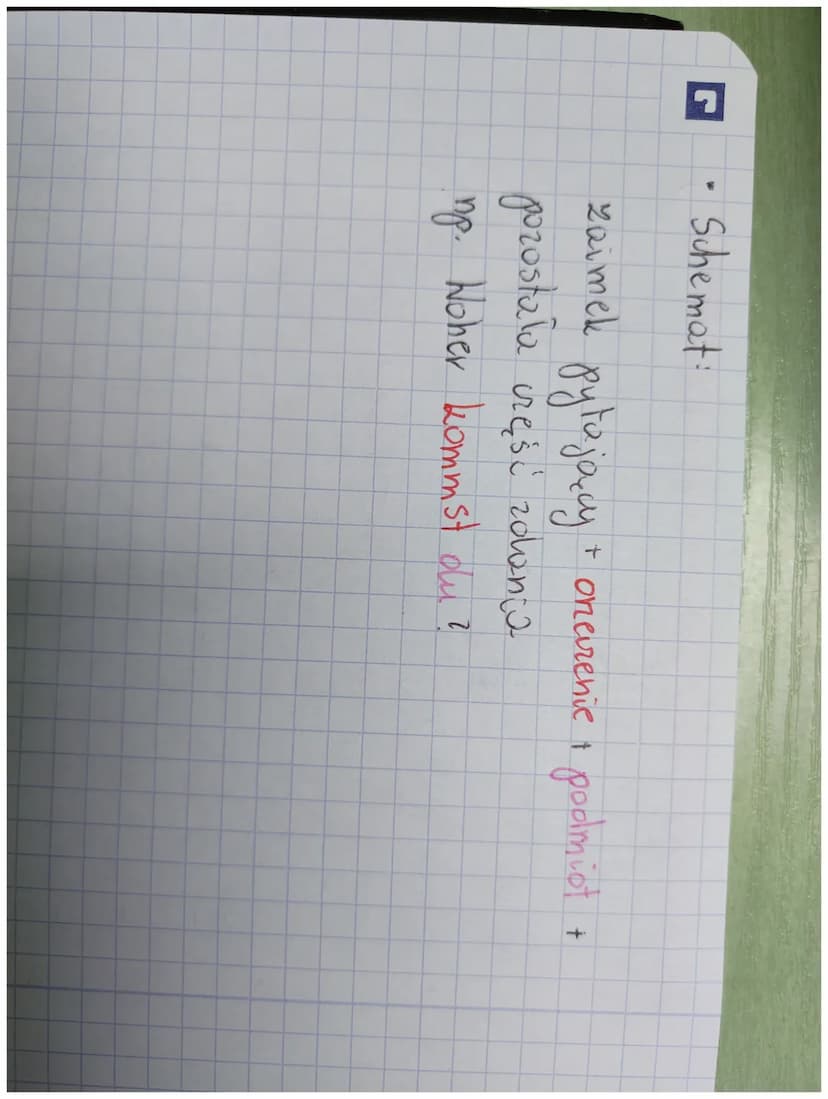 • Schemat:
zaimek pytający + orzeczenie + podmiot +
pozostała część zdania
np. Woher kommst du?